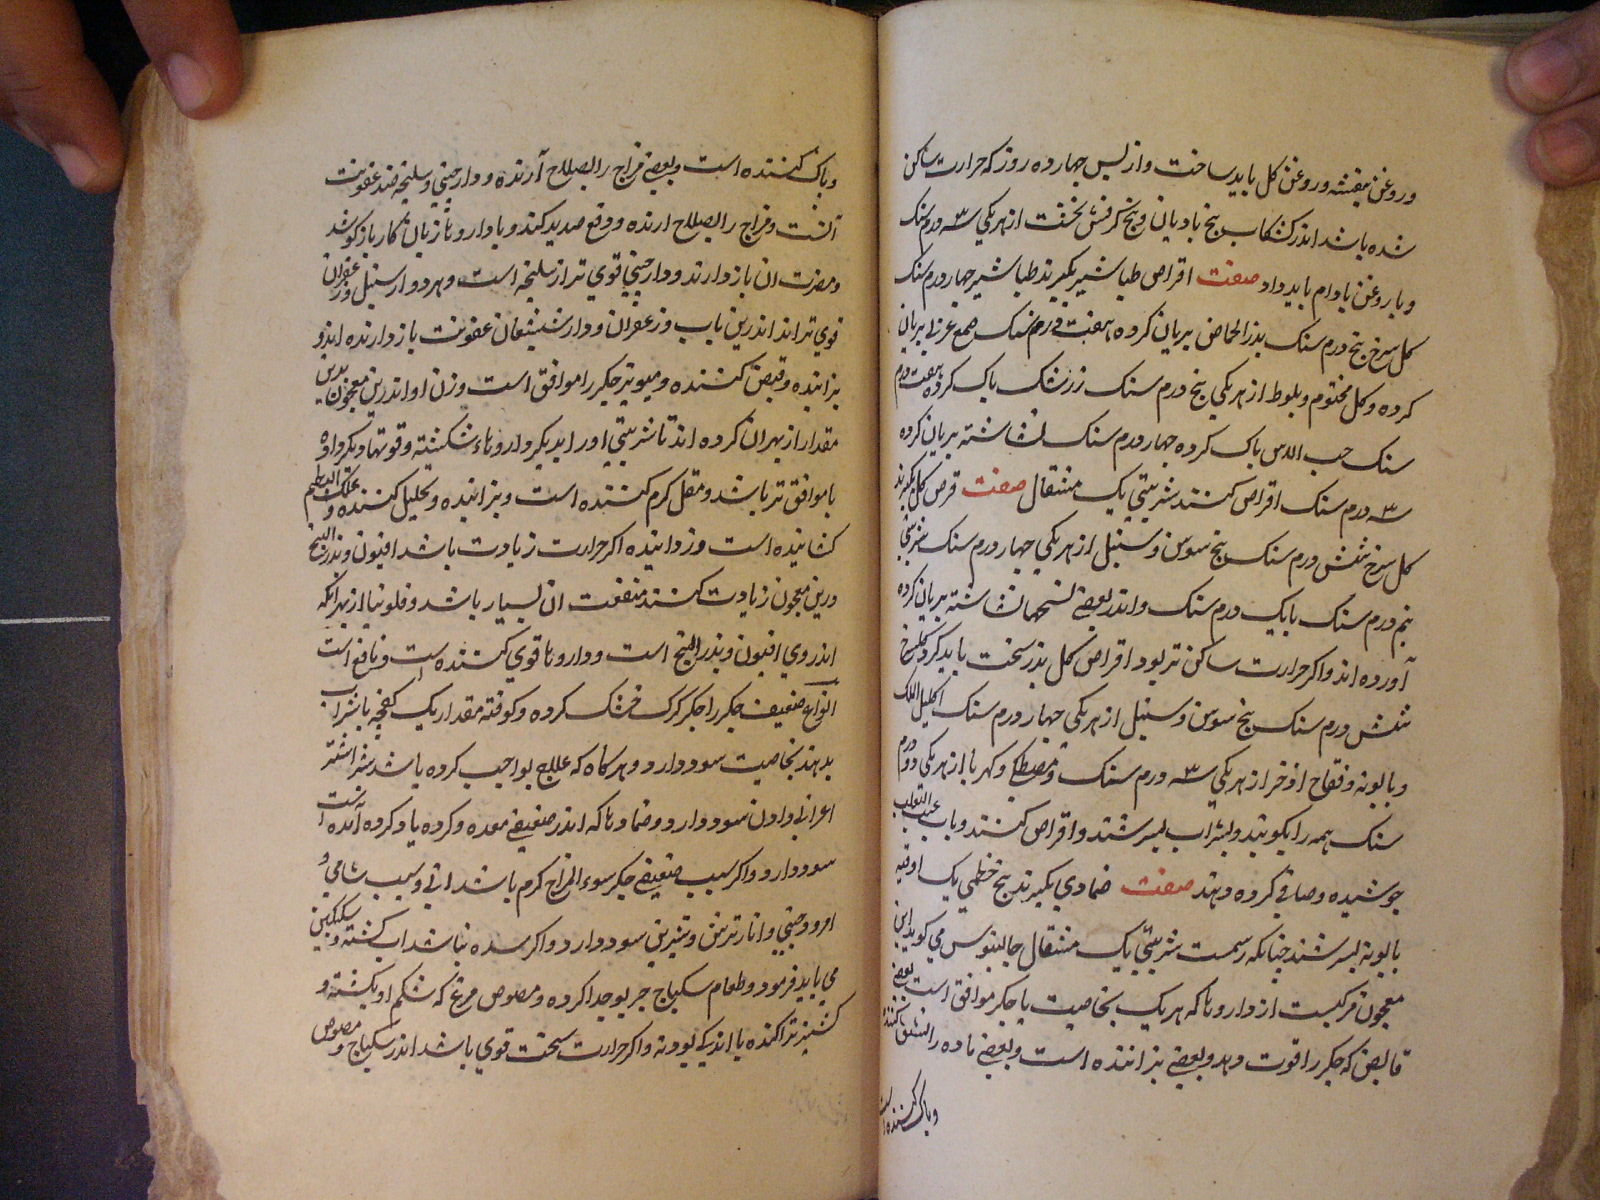 وروغن بنفشه وروغن کل باید ساخت واز پس چهارده روز که حرارت ساکن
شده باشد اندر کشکاب بیخ بادیان وبیخ کرفس پخت از هریکی سه درم سنک
وبا روغن بادام باید داد صفت اقراص طباشیر بکیرند طباشیر چهار درم سنک
کل سرخ پنج درم سنک بذر الحماض بریان کرده هفت درم سنک صمغ عربی بریان
کرده وکل مختوم وبلوط از هریکی پنج درم سنک زرشک پاک کرده هفت درم
سنک حب الاس پاک کرده چهار درم سنک نشاسته بریان کرده
سه درم سنک اقراص کنند شربتی یک مثقال صفت قرص کل بکیرند
کل سرخ شش درم سنک بیخ سوس وسنبل از هریکی چهار درم سنک
نیم درم سنک یا یک درم سنک واندر بعضی نسخها نشاسته بریان کرده
آورده اند واکر حرارت ساکن تر بود اقراص کل بذر سخت باید کرد کل سرخ
شش درم سنک بیخ سوس وسنبل از هریکی چهار درم سنک اکلیل الملک
وبابونه وفقاح اذخر از هریکی سه درم سنک ومصطکی وکهربا از هریکی دو درم
سنک همه را بکوبند وبشراب بسرشند واقراص کنند وبآب عنب الثعلب
جوشیده وصافی کرده دهند صفت ضمادی بکیرند بیخ خطمی یک اوقیه
بابونه بسرشند چنانکه رسمت شربتی یک مثقال جالینوس می کوید این
معجون مرکبست از داروها که هر یک بخاصیت با جکر موافق است بعضی
قابض که جکر را قوت دهد وبعضی پزاننده است وبعضی ماده را کننده
وپاک کننده است
وپاک کننده است وبعضی مزاج را بصلاح آرنده ودارچینی وسلیخه ضد عفونت
آنست ومزاج را بصلاح ارنده ودفع صدید کند وبا داروها زیان کار باز کوشد
ومضرت ان باز دارند ودارچینی قوی تر از سلیخه است وهردو از سنبل وزعفران
قوی تر اند اندرین باب وزعفران ودارشیشعان عفونت باز دارنده اند و
پزاننده وقبض کننده ومویز جکر را موافق است وزن او اندرین معجون بدین
مقدار از بهر ان کرده اند تا شربتی اورا بدیکر داروهاء شکسته وقوتها
با موافق تر باشد ومقل کرم کننده است وپزاننده وتحلیل کننده وعلک البطم
کشاینده است وزداینده اکر حرارت زیادت باشد افیون وبذر البنج
درین معجون زیادت کنند منفعت ان بسیار باشد وفلونیا از بهر انکه
اندر وی افیون وبذر البنج است وداروها قوی کننده است ونافع است
انواع ضعیفی جکر را جکر کرک خشک کرده وکوفته مقدار یک کفچه با شراب
بدهند بخاصیت سود دارد وهرکاه که علاج بواجب کرده باشند شیر اشتر
اعرابی دادن سود دارد وضمادها که اندر ضعیفی معده وکرده یاد کرده آمده است
سود دارد واکر سبب ضعیفی جکر سوء المزاج کرم باشد ابی وسیب شامی و
امرود چینی وانار ترش وشیرین سود دارد واکر سده نباشد اب کشته وسکنکبین
می باید فرمود وطعام سکباج چربو جدا کرده ومصوص مرغ که شکم او بکشنه و
کشنیز تر اکنده با اندکی پودنه واکر حرارت سخت قوی باشد اندر سکباج ومصوص